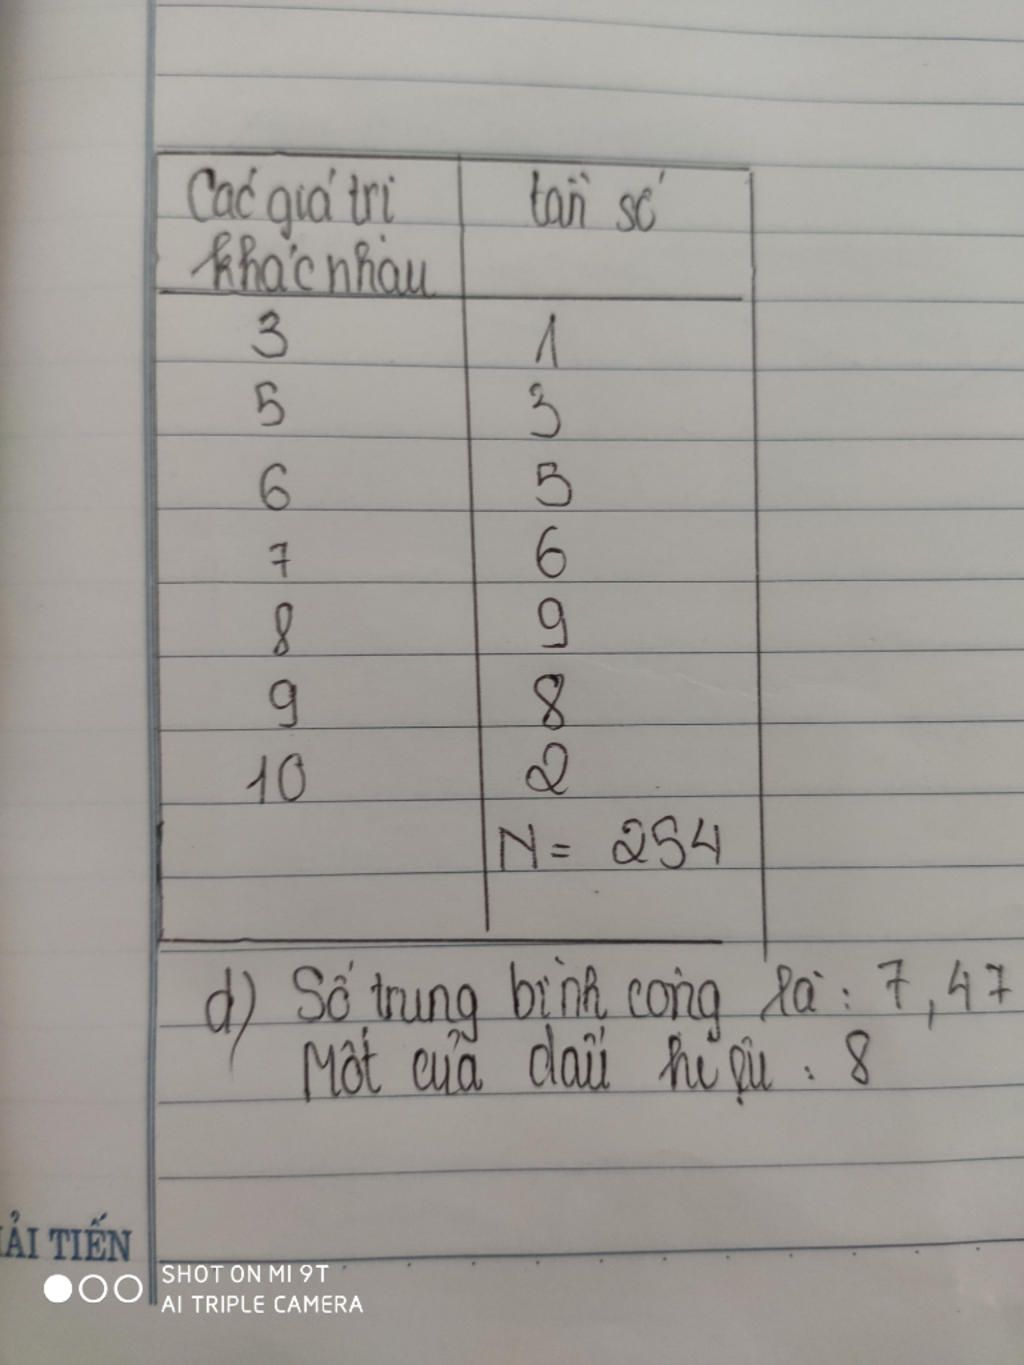 Các giá trị tần số
khác nhau
3 1
5 3
6 5
7 6
8 9
9 8
10 2
N = 254
d) Số trung bình cộng là : 7,47
Mốt của dấu hiệu : 8
ẢI TIẾN
SHOT ON MI 9T
AI TRIPLE CAMERA